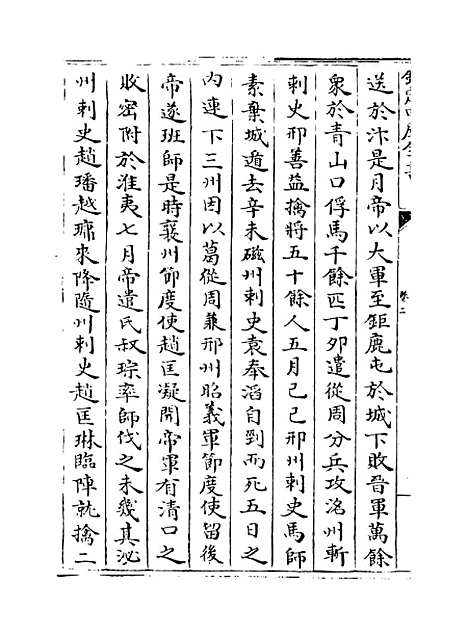 欽定四庫全書
卷二
送於汴是月帝以大軍至鉅鹿屯於城下敗晉軍萬餘
衆於青山口俘馬千餘匹丁卯遣從周分兵攻洺州斬
刺史邢善益擒將五十餘人五月己巳邢州刺史馬師
素棄城遁去辛未磁州刺史袁奉滔自剄而死五日之
内連下三州因以葛從周兼邢州昭義軍節度使留後
帝遂班師是時襄州節度使趙匡凝聞帝軍有清口之
敗密附於淮夷七月帝遣氏叔琮率師伐之未幾其泌
州刺史趙璠越墉來降隨州刺史趙匡琳臨陣就擒二